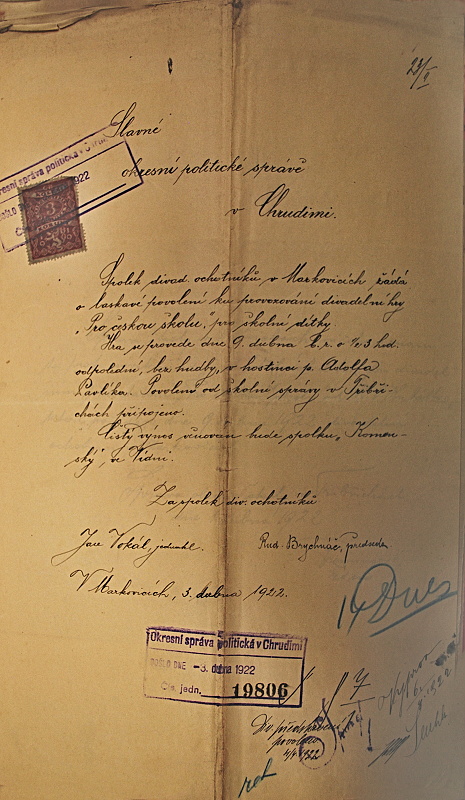 23/II
Slavné
okresní politické správě
v Chrudimi.
Okresní správa politická v Chrudimi
1922
Spolek divad. ochotníků v Markovicích žádá
o laskavé povolení ku provozování divadelní hry
„Pro českou školu", pro školní dítky.
Hra se provede dne 9. dubna t. r. o ½ 3 hod.
odpolední, bez hudby, v hostinci p. Adolfa
Pavlíka. Povolení od školní správy v Třibři-
chách připojeno.
Čistý výnos věnován bude spolku „Komen-
ský", ve Vídni.
Za spolek div. ochotníků
Jar. Vokál, jednatel.
Rud. Brychnáč, předseda
V Markovicích, 3. dubna 1922.
14 Dnes
Okresní správa politická v Chrudimi
DOŠLO DNE -3. dubna 1922
Čís. jedn. 19806
7
povoleno
4/4 1922